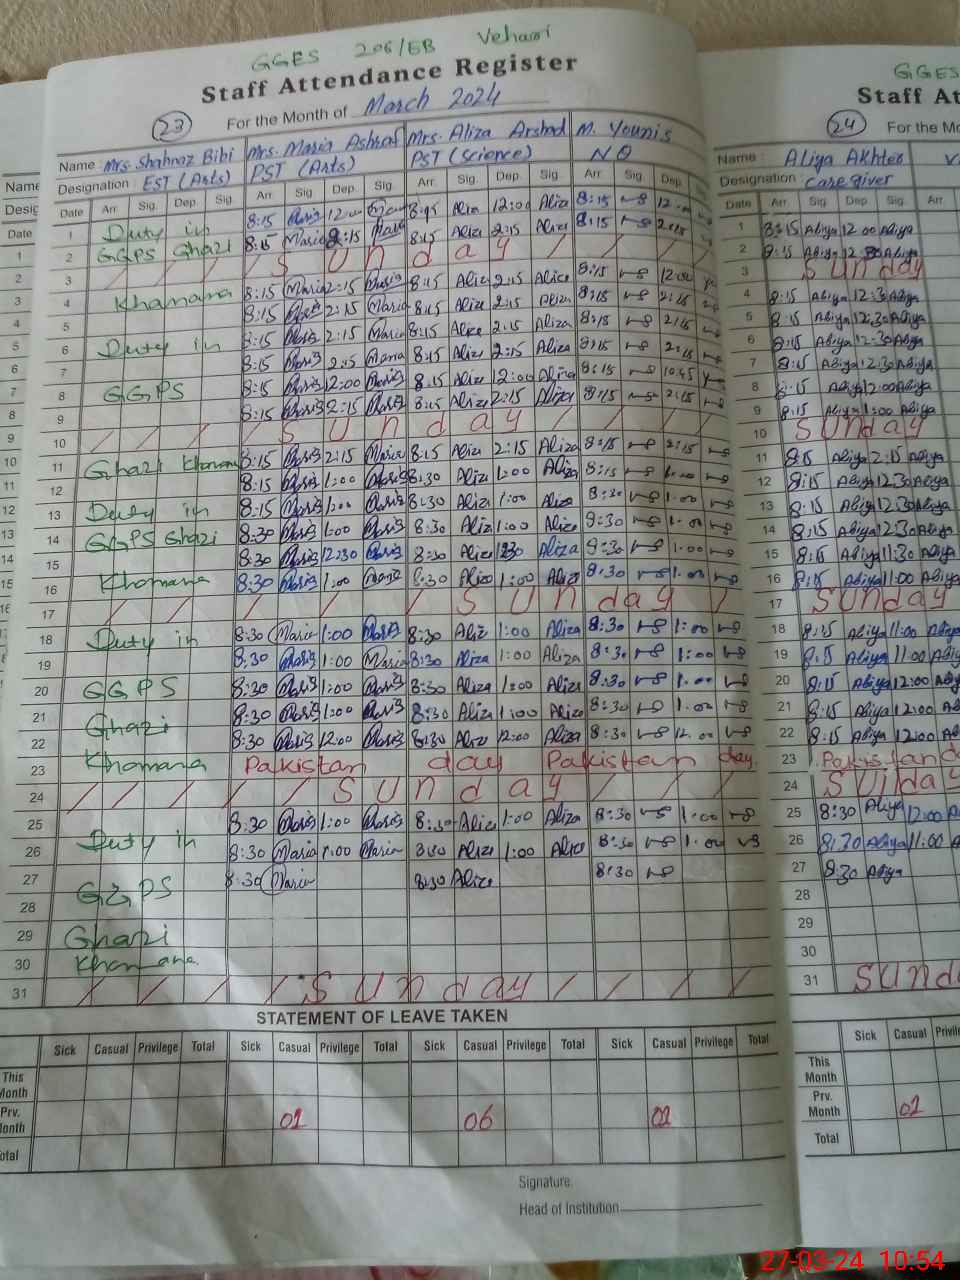 GGES 206/EB Vehari
Staff Attendance Register
(23) For the Month of March 2024
Name : Mrs. Shahnaz Bibi Mrs. Maria Ashraf Mrs. Aliza Arshad M. Younis
Designation : EST (Arts) PST (Arts) PST (Science) N Q
Date Arr. Sig. Dep. Sig. Arr. Sig. Dep. Sig. Arr. Sig. Dep. Sig. Arr. Sig. Dep.
1 Duty in 8:15 12:00 8:15 Aliza 12:00 Aliza 8:15
2 GGPS Ghazi 8:15 Maria 2:15 Maria 8:15 Aliza 2:15 Aliza 8:15 2:15
3 Sunday
4 Khamana 8:15 Maria 2:15 Maria 8:15 Aliza 2:15 Aliza 8:15
5 8:15 Maria 2:15 Maria 8:15 Aliza 2:15 Aliza 8:15 2:15
6 Duty in 8:15 Maria 2:15 Maria 8:15 Aliza 2:15 Aliza 8:15 2:15
7 8:15 Maria 2:15 Maria 8:15 Aliza 2:15 Aliza 8:15 2:15
8 GGPS 8:15 Maria 12:00 Maria 8:15 Aliza 12:00 Aliza 8:15 10:45
9 8:15 Maria 2:15 Maria 8:15 Aliza 2:15 Aliza 8:15 2:15
10 Sunday
11 Ghazi Khamana 8:15 Maria 2:15 Maria 8:15 Aliza 2:15 Aliza 8:15 2:15
12 8:15 Maria 1:00 Maria 8:30 Aliza 1:00 Aliza 8:15 1:00
13 Duty in 8:15 Maria 1:00 Maria 8:30 Aliza 1:00 Aliza 8:30 1:00
14 GGPS Ghazi 8:30 Maria 1:00 Maria 8:30 Aliza 1:00 Aliza 8:30 1:00
15 8:30 Maria 12:30 Maria 8:30 Aliza Aliza 8:30 1:00
16 Khamana 8:30 Maria 1:00 Maria 8:30 Aliza 1:00 Aliza 8:30 1:00
17 Sunday
18 Duty in 8:30 Maria 1:00 Maria 8:30 Aliza 1:00 Aliza 8:30 1:00
19 8:30 Maria 1:00 Maria 8:30 Aliza 1:00 Aliza 8:30 1:00
20 GGPS 8:30 Maria 1:00 Maria 8:30 Aliza 1:00 Aliza 8:30 1:00
21 Ghazi 8:30 Maria 1:00 Maria 8:30 Aliza 1:00 Aliza 8:30 1:00
22 8:30 Maria 12:00 Maria 8:30 Aliza 12:00 Aliza 8:30 12:00
23 Khamana Pakistan day Pakistan day
24 Sunday
25 8:30 Maria 1:00 Maria 8:30 Aliza 1:00 Aliza 8:30 1:00
26 Duty in 8:30 Maria 1:00 Maria 8:30 Aliza 1:00 Aliza 8:30 1:00
27 8:30 Maria 8:30 Aliza 8:30
28 GGPS
29 Ghazi
30 Khamana
31 Sunday
STATEMENT OF LEAVE TAKEN
Sick Casual Privilege Total Sick Casual Privilege Total Sick Casual Privilege Total Sick Casual Privilege Total
This Month
Prv. Month 01 06 01
Total
Signature.
Head of Institution
GGES
Staff At
(24) For the Mo
Name : Aliya Akhter
Designation : Care giver
Date Arr. Sig. Dep. Sig. Arr
1 8:15 Aliya 12:00 Aliya
2 8:15 Aliya 12:30 Aliya
3 Sunday
4 8:15 Aliya 12:30 Aliya
5 8:15 Aliya 12:30 Aliya
6 8:15 Aliya 12:30 Aliya
7 8:15 Aliya 12:30 Aliya
8 8:15 Aliya 12:00 Aliya
9 8:15 Aliya 1:00 Aliya
10 Sunday
11 8:15 Aliya 2:15 Aliya
12 8:15 Aliya 12:30 Aliya
13 8:15 Aliya 12:30 Aliya
14 8:15 Aliya 12:30 Aliya
15 8:15 Aliya 11:30 Aliya
16 8:15 Aliya 11:00 Aliya
17 Sunday
18 8:15 Aliya 11:00 Aliya
19 8:15 Aliya 11:00 Aliya
20 8:15 Aliya 12:00 Aliya
21 8:15 Aliya 12:00 Al
22 8:15 Aliya 12:00 Al
23 Pakistan d
24 Sunday
25 8:30 Aliya 12:00 A
26 8:30 Aliya 11:00 A
27 8:30 Aliya
28
29
30
31 Sunda
Sick Casual Privile
This Month
Prv. Month 01
Total
27-03-24 10:54